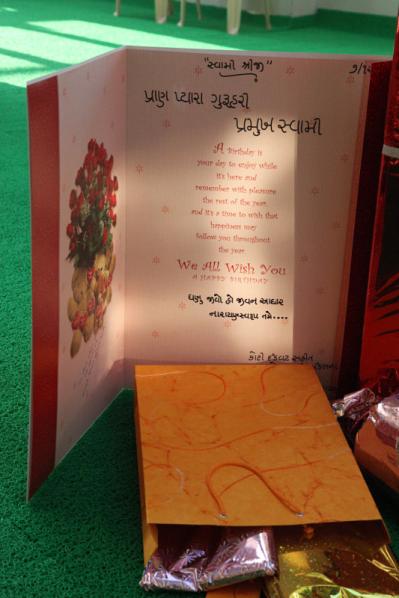 "સ્વામી શ્રીજી"
પ્રાણ પ્યારા ગુરુહરી
પ્રમુખ સ્વામી
A Birthday is
your day to enjoy while
it's here and
remember with pleasure
the rest of the year,
and it's a time to wish that
happiness may
follow you throughout
the year
We All Wish You
A HAPPY BIRTHDAY
ઘણુ જીવો હો જીવન આધાર
નારાયણસ્વરૂપ તમે....
કોટી દંડવત સહીત